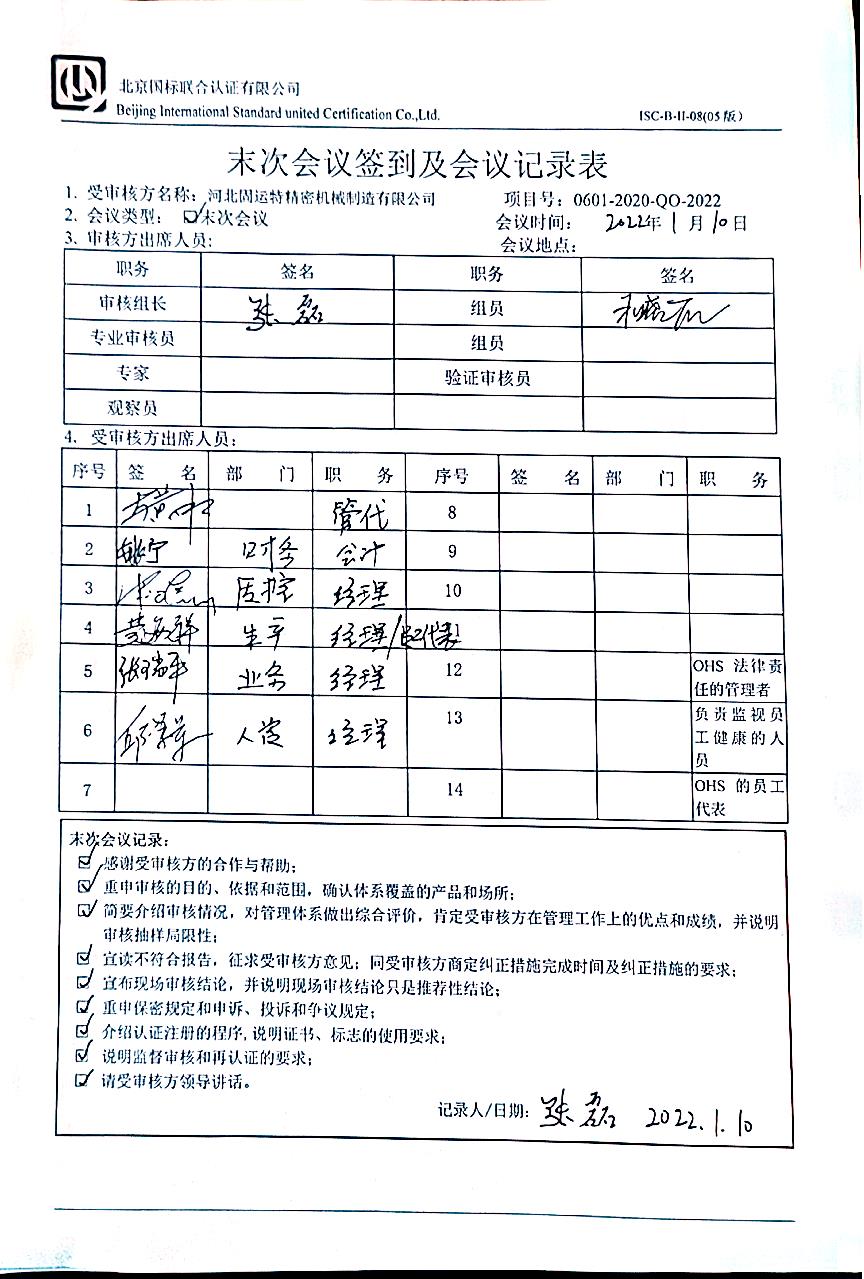 北京国标联合认证有限公司
Beijing International Standard united Certification Co.,Ltd. ISC-B-II-08(05版)
末次会议签到及会议记录表
1. 受审核方名称：河北固运特精密机械制造有限公司 项目号：0601-2020-QO-2022
2. 会议类型：☑末次会议 会议时间： 2022年 1 月 10 日
3. 审核方出席人员： 会议地点：
职务 签名 职务 签名
审核组长 张磊 组员
专业审核员 组员
专家 验证审核员
观察员
4. 受审核方出席人员：
序号 签 名 部 门 职 务 序号 签 名 部 门 职 务
1 管代 8
2 财务 会计 9
3 质控 经理 10
4 生产 经理/ 代表
5 张瑞平 业务 经理 12 OHS 法律责
任的管理者
6 经理 13 负责监视员
工健康的人
员
7 14 OHS 的员工
代表
末次会议记录：
☑ 感谢受审核方的合作与帮助；
☑ 重申审核的目的、依据和范围，确认体系覆盖的产品和场所；
☑ 简要介绍审核情况，对管理体系做出综合评价，肯定受审核方在管理工作上的优点和成绩，并说明
审核抽样局限性；
☑ 宣读不符合报告，征求受审核方意见；同受审核方商定纠正措施完成时间及纠正措施的要求；
☑ 宣布现场审核结论，并说明现场审核结论只是推荐性结论；
☑ 重申保密规定和申诉、投诉和争议规定；
☑ 介绍认证注册的程序,说明证书、标志的使用要求；
☑ 说明监督审核和再认证的要求；
☑ 请受审核方领导讲话。
记录人/日期： 张磊 2022.1.10